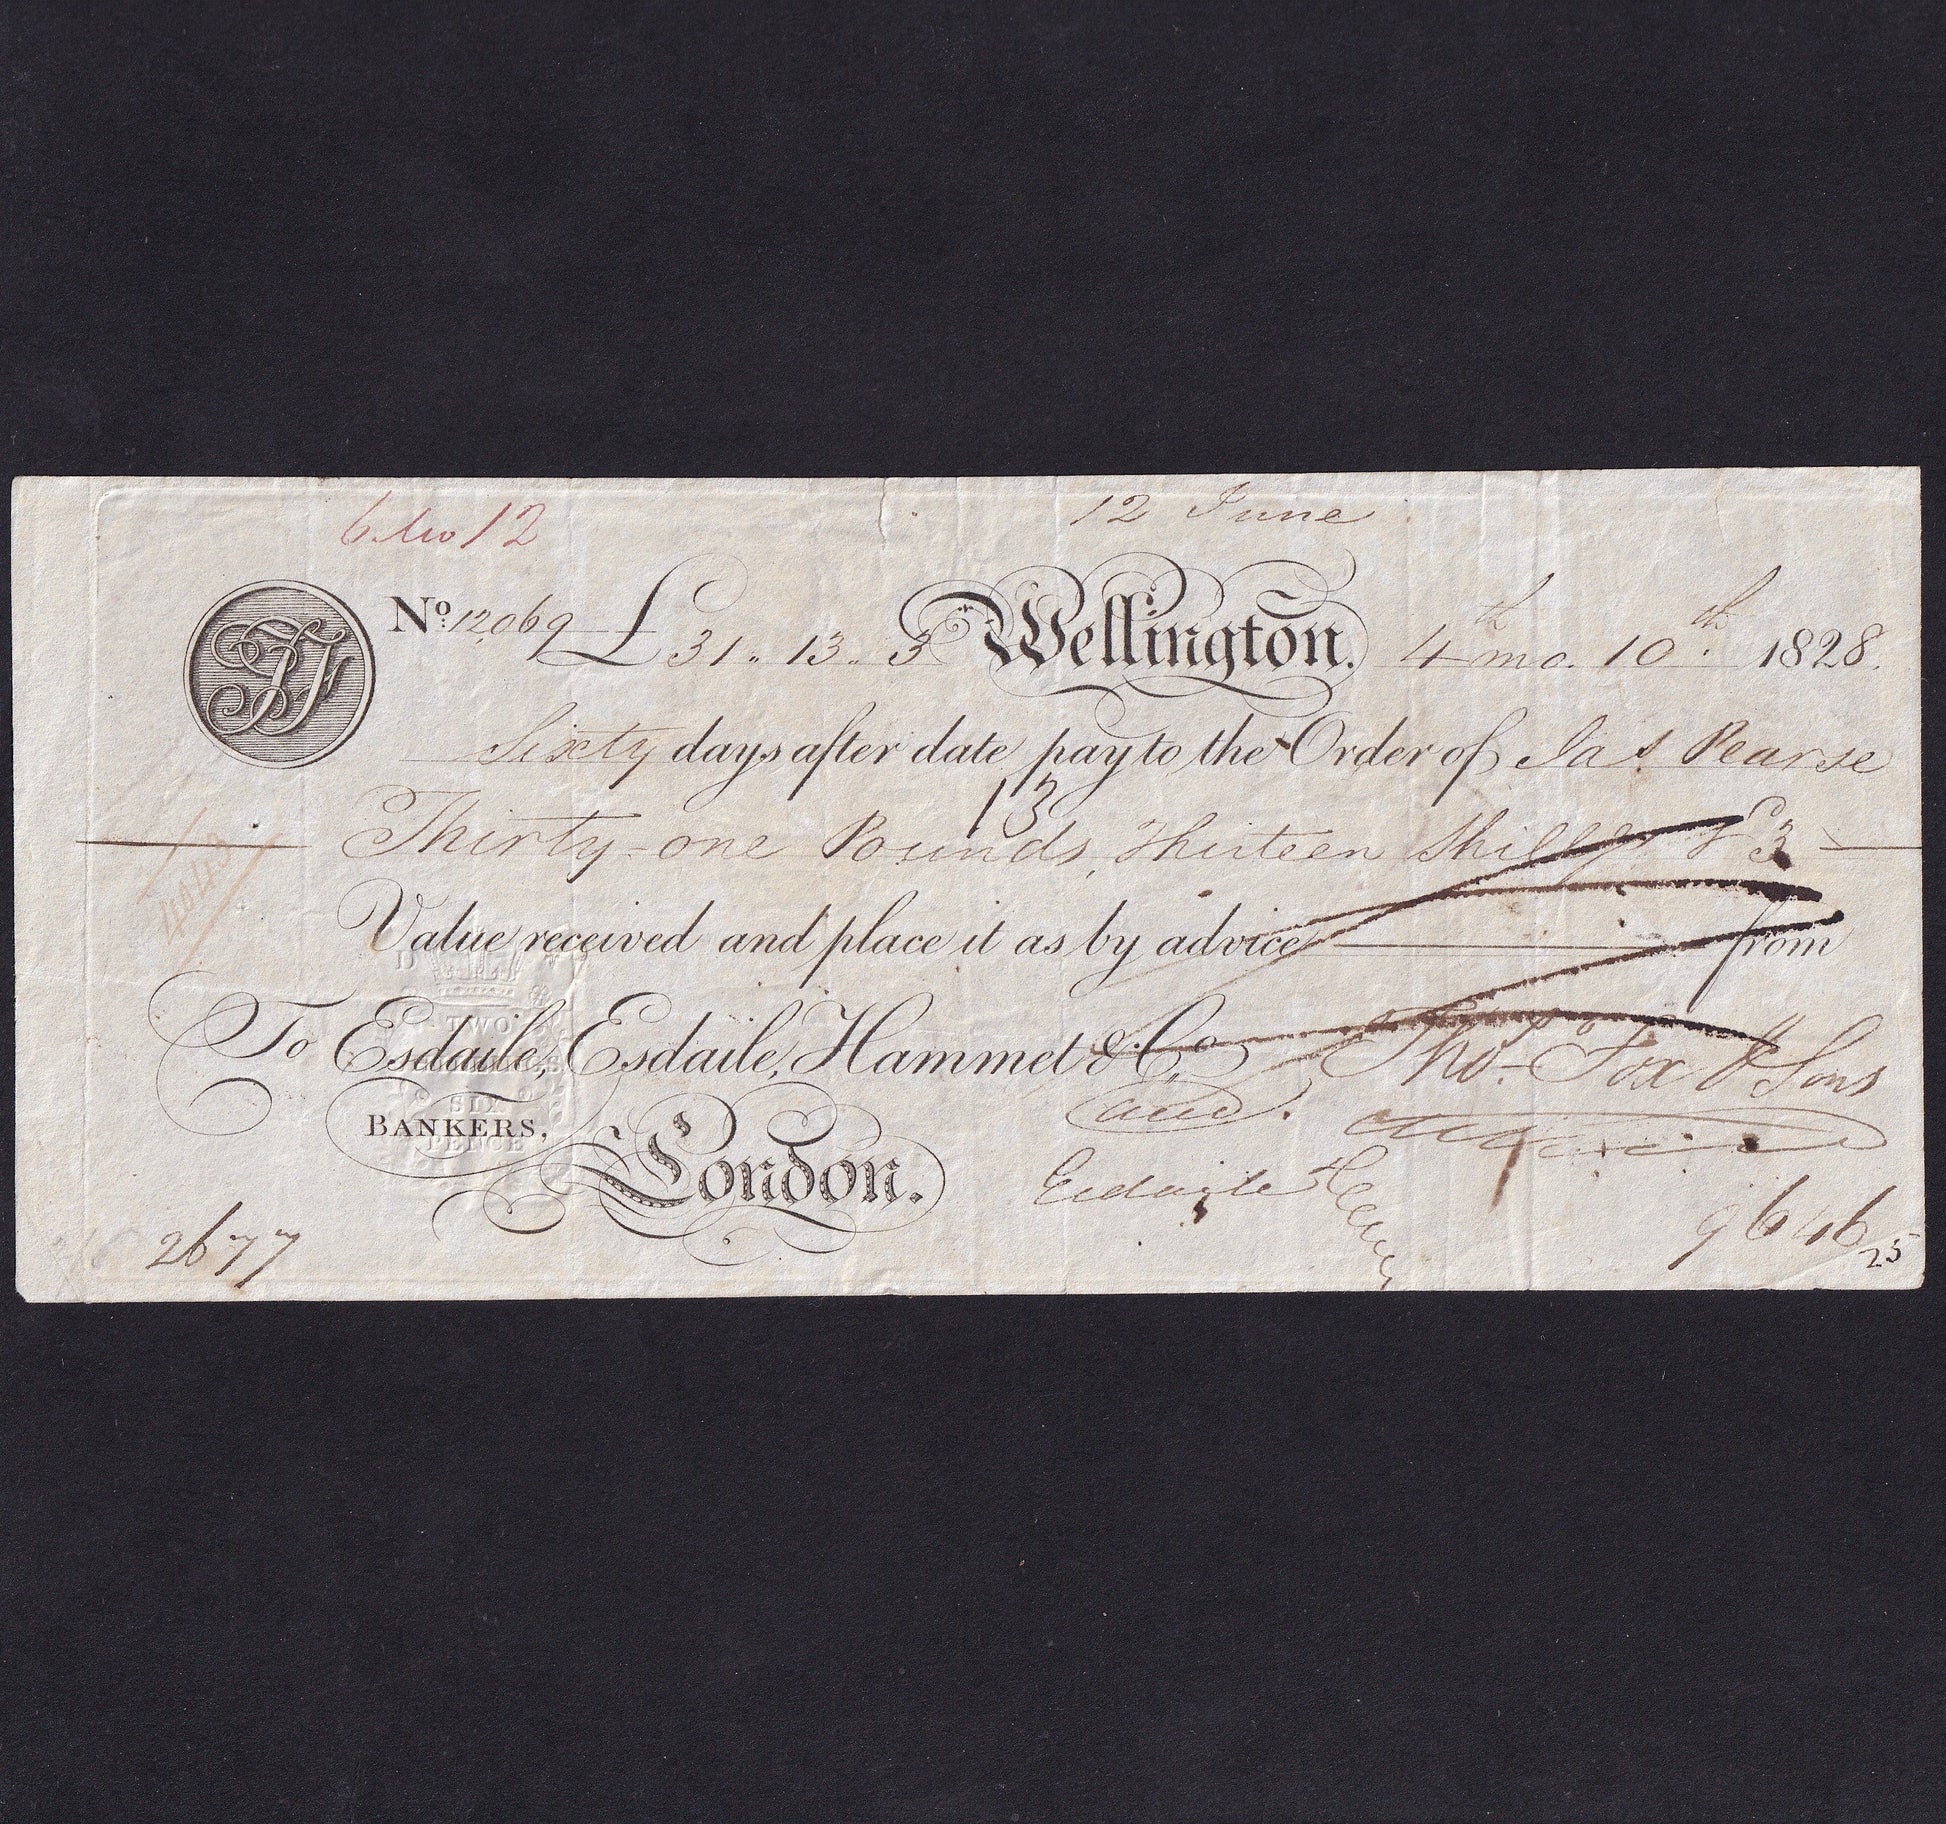 6 Mo 12
12 June
TF
No. 12,069 £ 31.. 13.. 3 Wellington. 4th mo. 10th. 1828.
Sixty days after date pay to the Order of Jas. Pearse
13
Thirty-one Pounds, Thirteen Shillgs & 3
4643
Value received and place it as by advice from
TWO
SIX
PENCE
To Esdaile, Esdaile, Hammet & Co. Thos. Fox & Sons
BANKERS,
London.
Esdaile
2677
9646/25